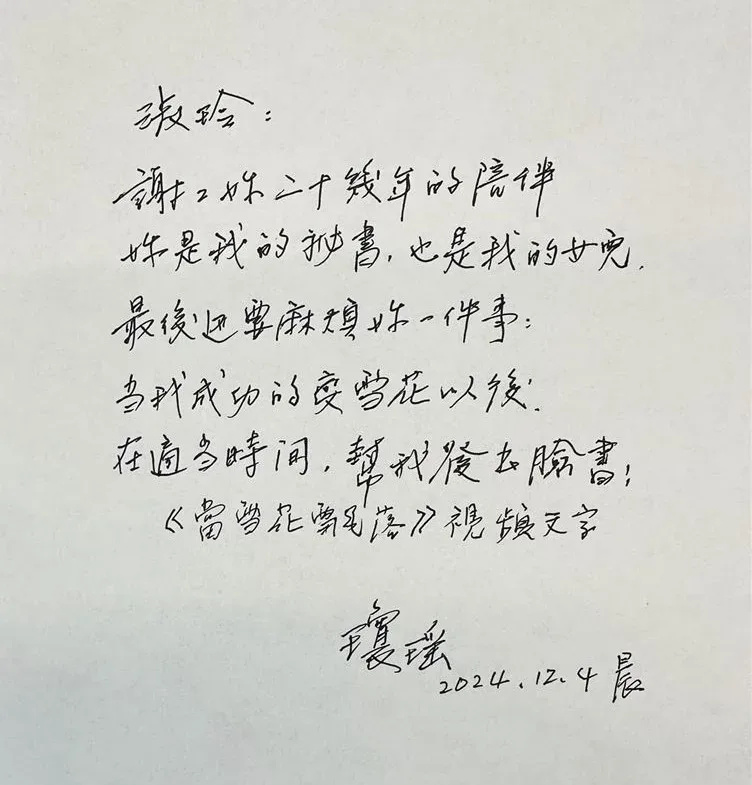 淑玲：
謝謝妳二十幾年的陪伴
妳是我的秘書，也是我的女兒。
最後还要麻煩妳一件事：
当我成功的变雪花以後。
在適当時间，幫我發去臉書！
《當雪花飄落》視頻文字
瓊瑤
2024.12.4 晨